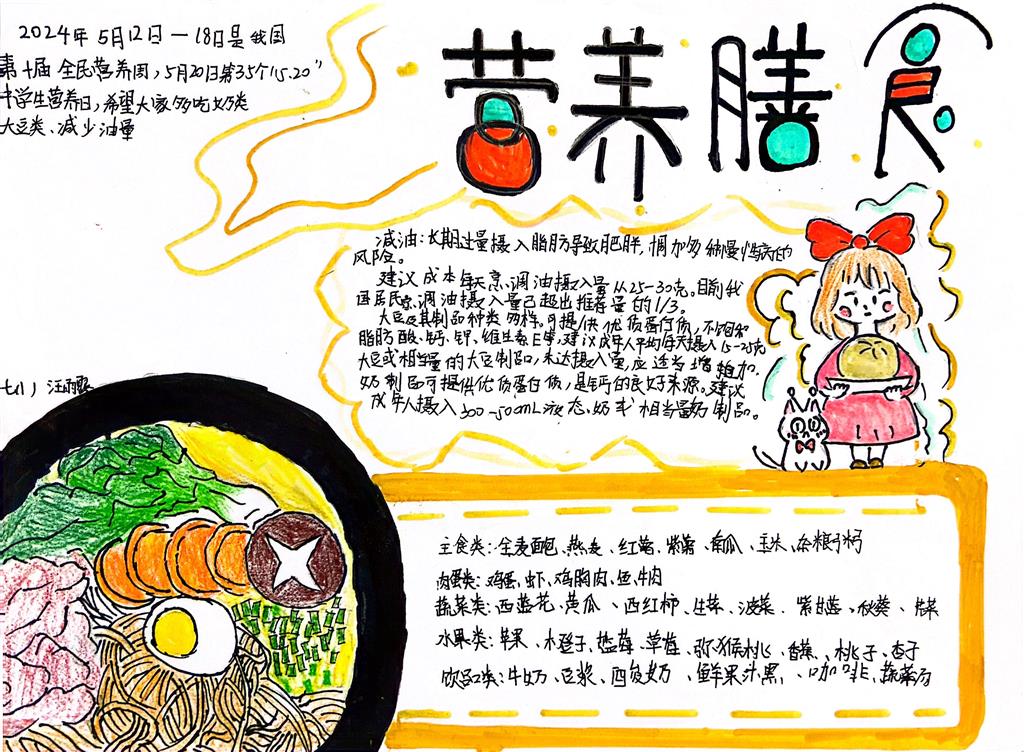 2024年5月12日一18日是我国
第十届全民营养周,5月20日第35个"5.20"
中学生营养日,希望大家多吃奶类
大豆类、减少油量
营养膳食
减油:长期过量摄入脂肪导致肥胖,增加多种慢性病的
风险。
建议成本每天烹调油摄入量从25-30克。目前我
国居民烹调油摄入量已超出推荐量的1/3。
大豆及其制品种类多样。可提供优质蛋白质,不饱和
脂肪酸、钙、钾、维生素E等,建议成年人平均每天摄入15-25克
大豆或相当量的大豆制品,未达摄入量,应适当增加.
奶制品可提供优质蛋白质,是钙的良好来源。建议
成年人摄入300-500mL液态奶或相当量奶制品。
七11) 汪雨
主食类:全麦面包、燕麦、红薯、紫薯、南瓜、玉米、杂粮
肉蛋类:鸡蛋、虾、鸡胸肉、鱼、牛肉
蔬菜类:西蓝花、黄瓜、西红柿、生菜、菠菜、紫甘蓝、秋葵、
水果类:苹果、木橙子、蓝莓、草莓、猕猴桃、香蕉、桃子、杏子
饮品类:牛奶、豆浆、酸奶、鲜果汁、黑、咖啡、蔬菜汤